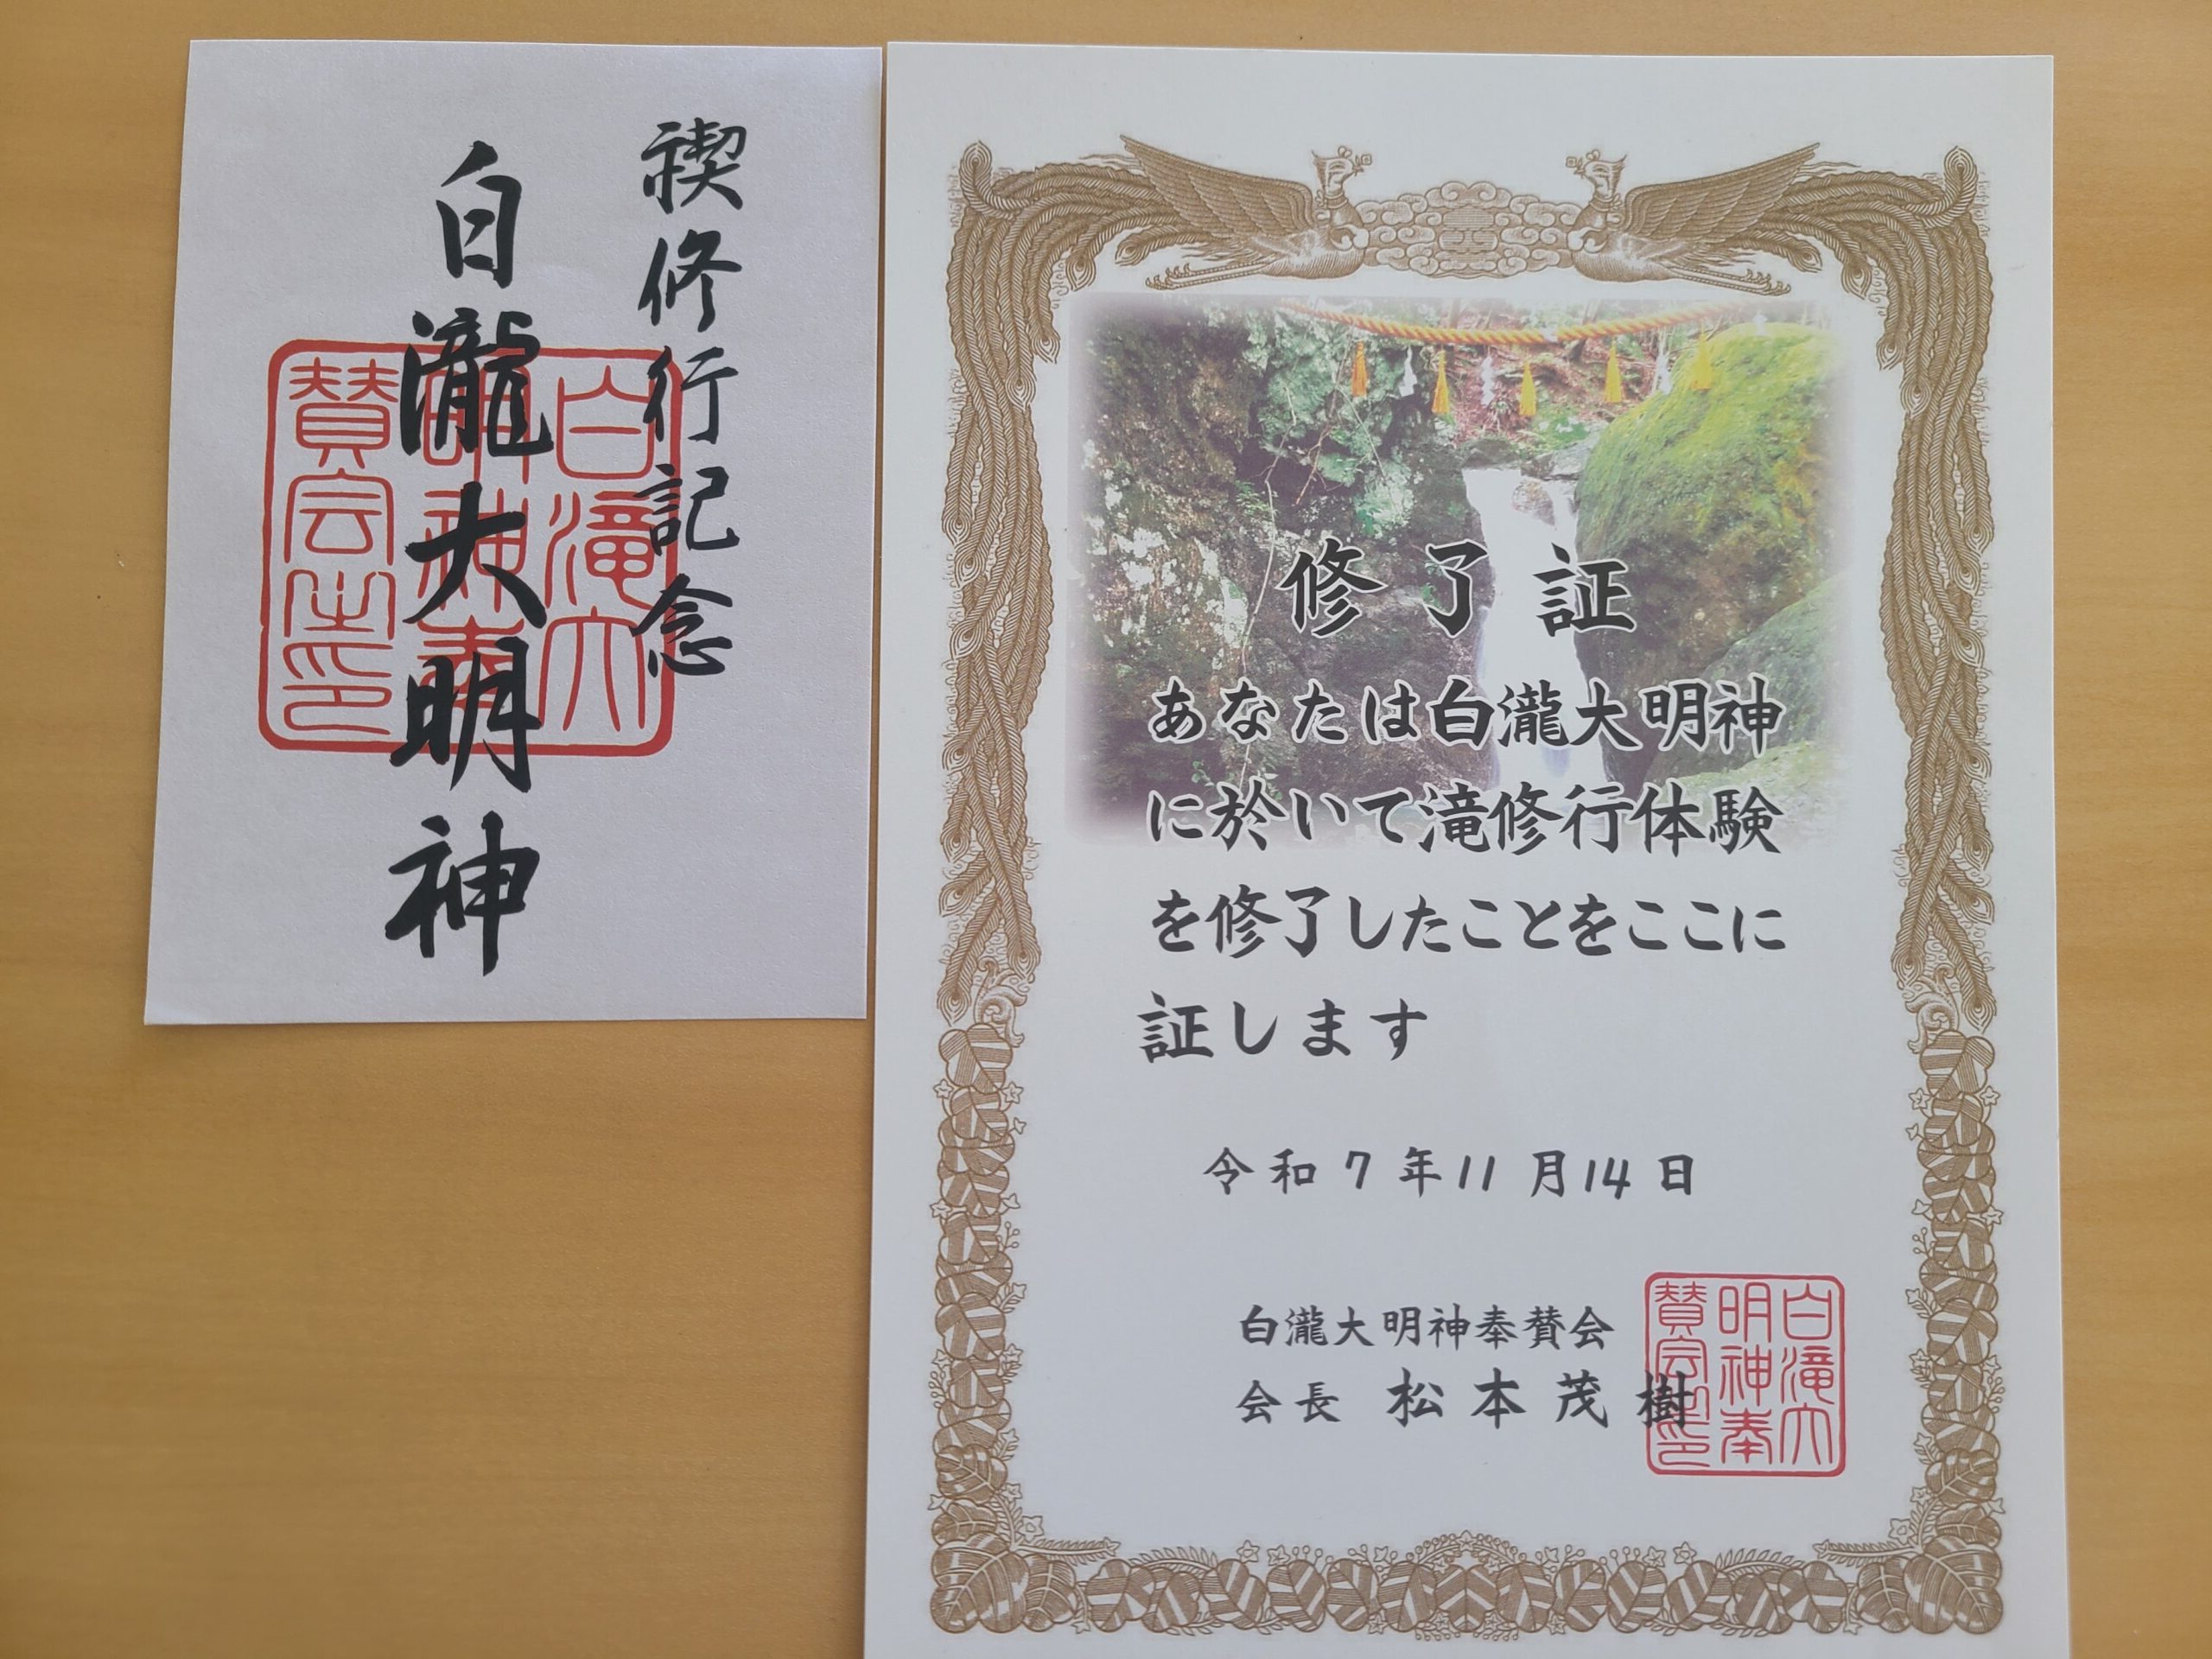 禊修行記念
白瀧大明神
白滝大
明神奉
賛会之印
修了証
あなたは白瀧大明神
に於いて滝修行体験
を修了したことをここに
証します
令和7年11月14日
白瀧大明神奉賛会
会長 松本茂樹
白滝大
明神奉
賛会之印